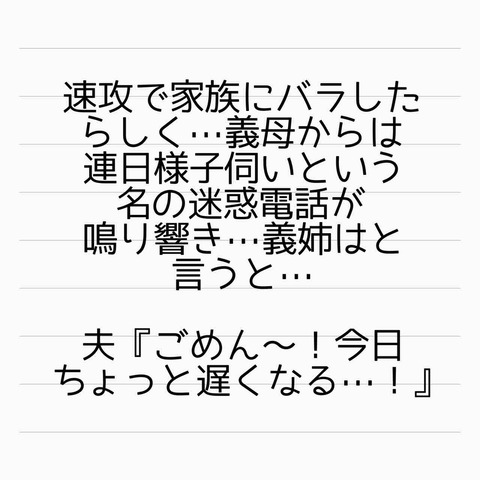 速攻で家族にバラした
らしく…義母からは
連日様子伺いという
名の迷惑電話が
鳴り響き…義姉はと
言うと…
夫『ごめん〜！今日
ちょっと遅くなる…！』